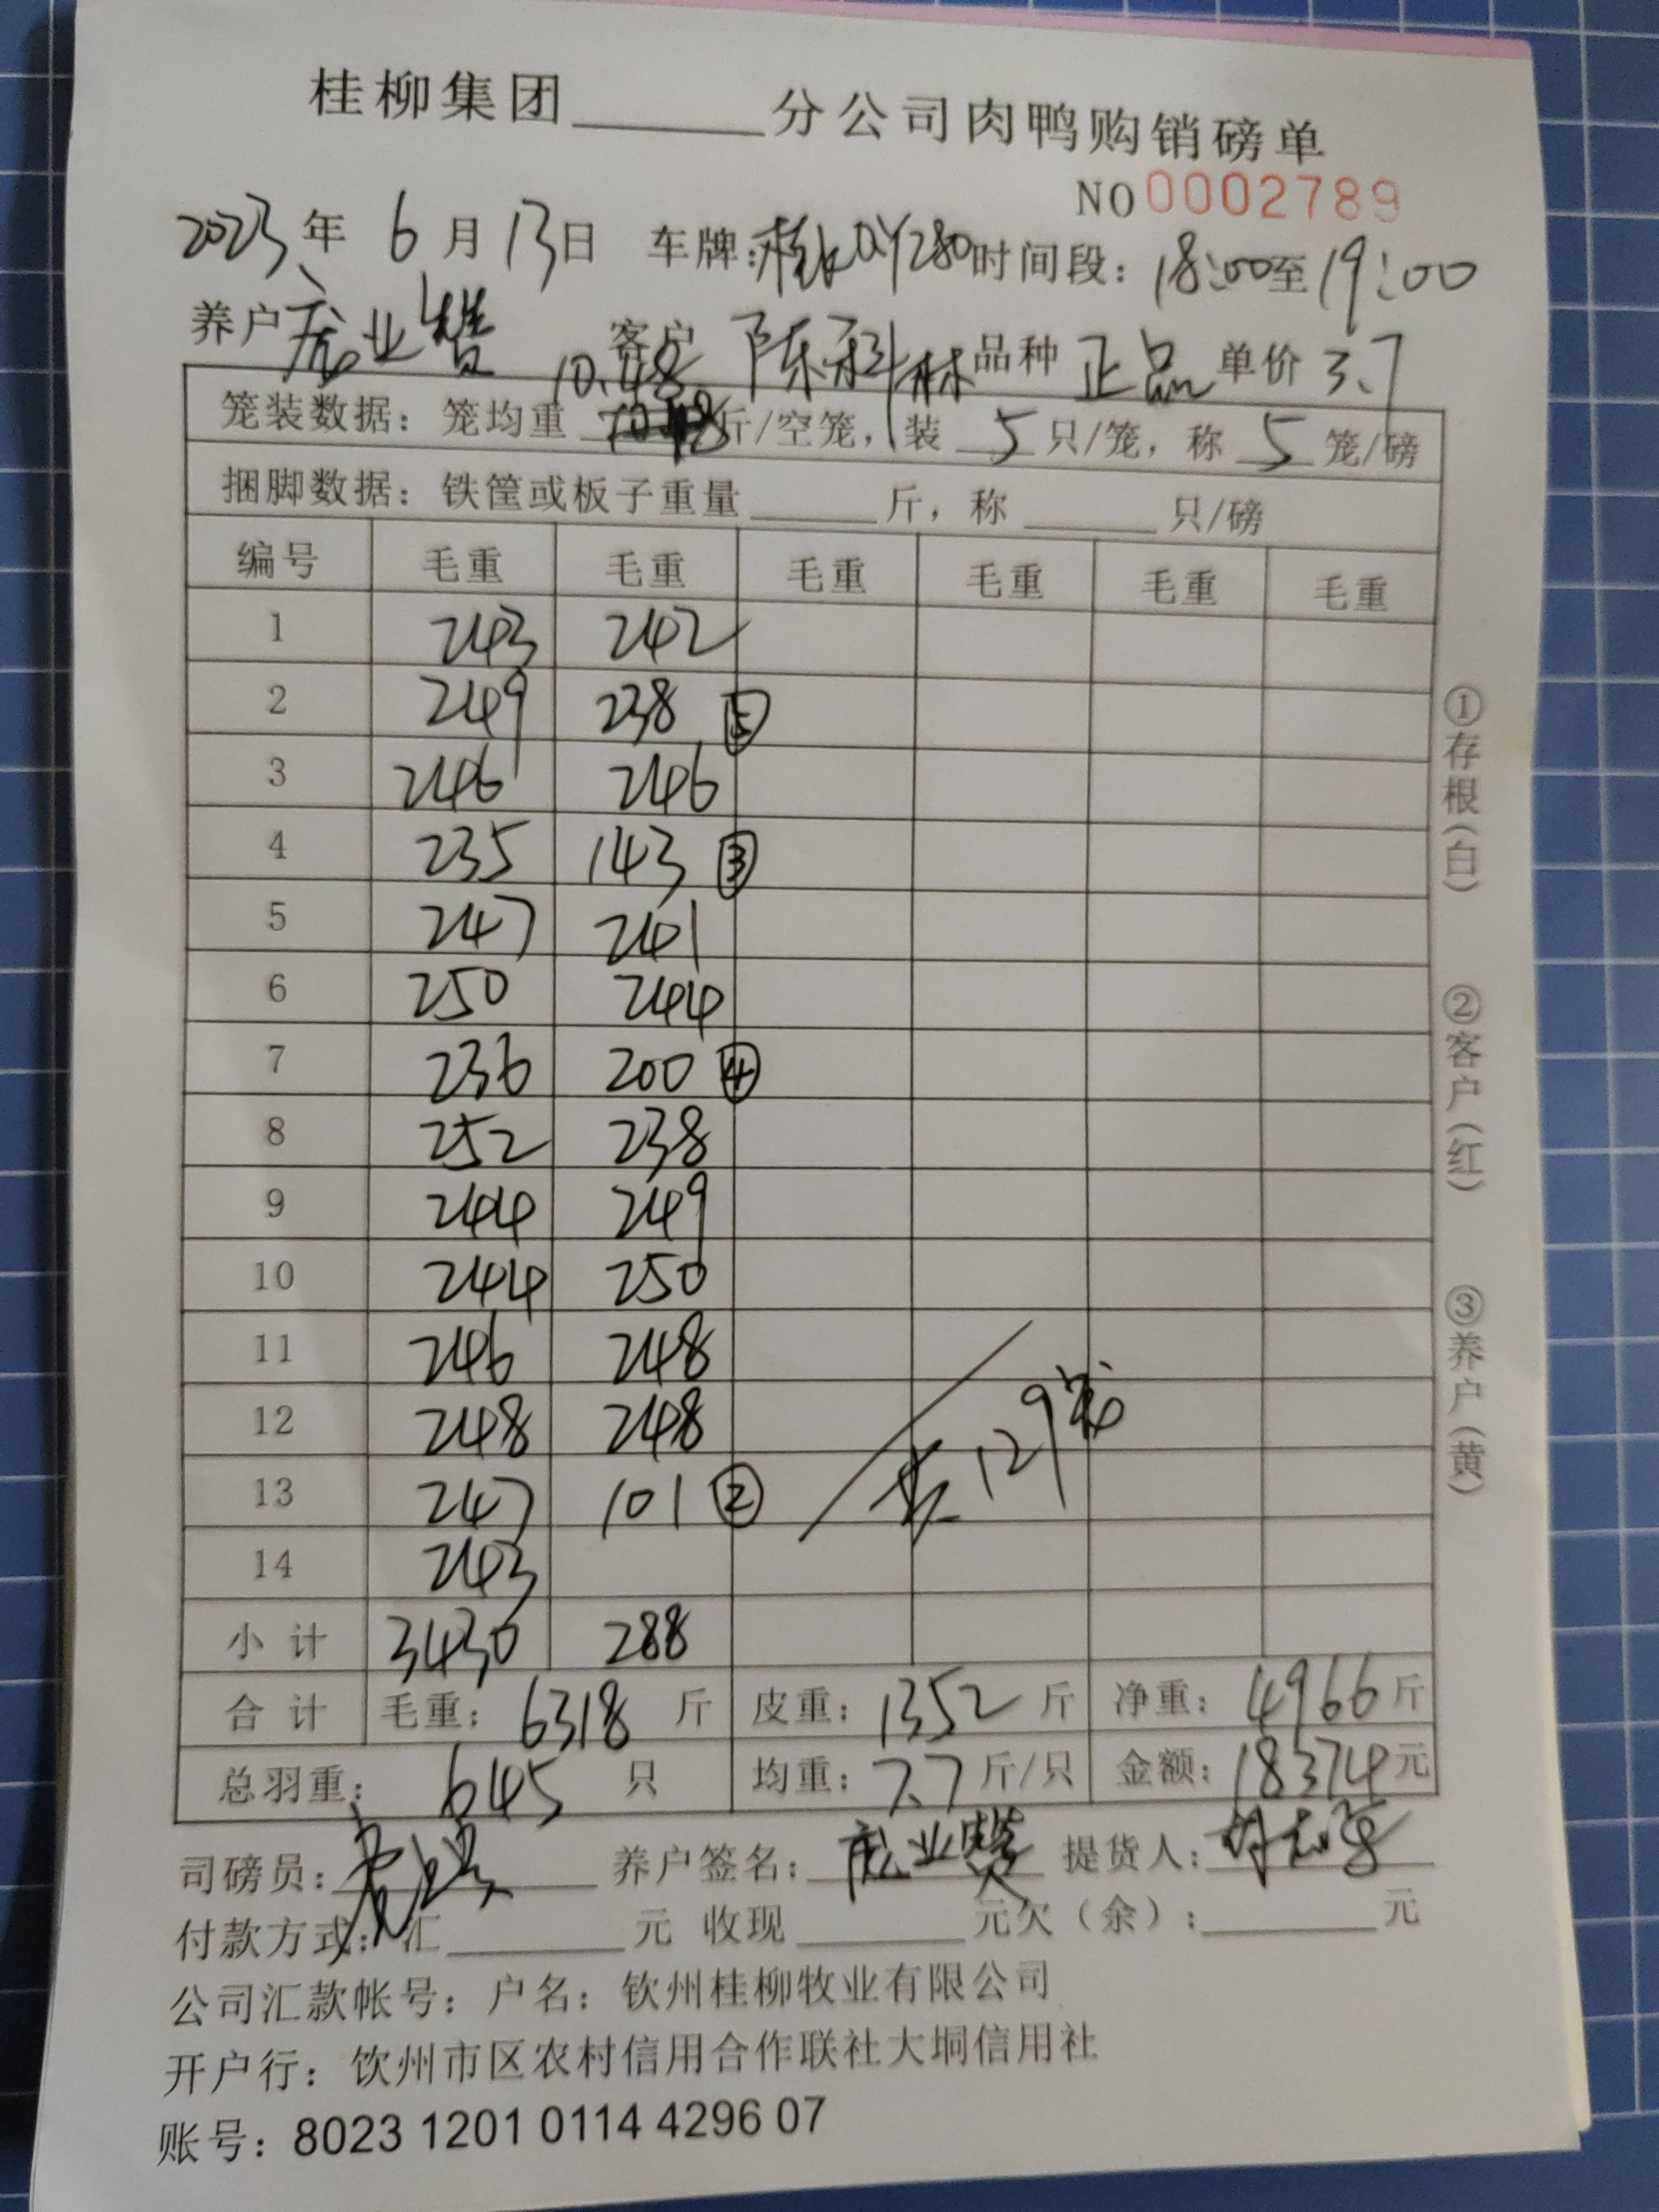 桂柳集团______分公司肉鸭购销磅单
NO 0002789
2023年 6月13日 车牌: 时间段: 18:00至19:00
养户 业 客户 陈科林 品种 正品 单价 3.7
10.48
笼装数据: 笼均重 斤/空笼, 装 5 只/笼, 称 5 笼/磅
捆脚数据: 铁筐或板子重量______斤, 称______只/磅
编号 毛重 毛重 毛重 毛重 毛重 毛重
1 243 242
2 249 238 ⑤
3 246 246
4 235 143 ③
5 247 241
6 250 244
7 236 200 ④
8 252 238
9 244 249
10 244 250
11 246 248
12 248 248
13 247 101 ②
14 243
共129笼
小计 3430 288
合计 毛重: 6318 斤 皮重: 1352 斤 净重: 4966 斤
总羽重: 645 只 均重: 7.7 斤/只 金额: 18374 元
司磅员: 养户签名: 业 提货人:
付款方式: 汇______元 收现______元欠(余):______元
公司汇款帐号: 户名: 钦州桂柳牧业有限公司
开户行: 钦州市区农村信用合作联社大垌信用社
账号: 8023 1201 0114 4296 07
①存根(白)
②客户(红)
③养户(黄)